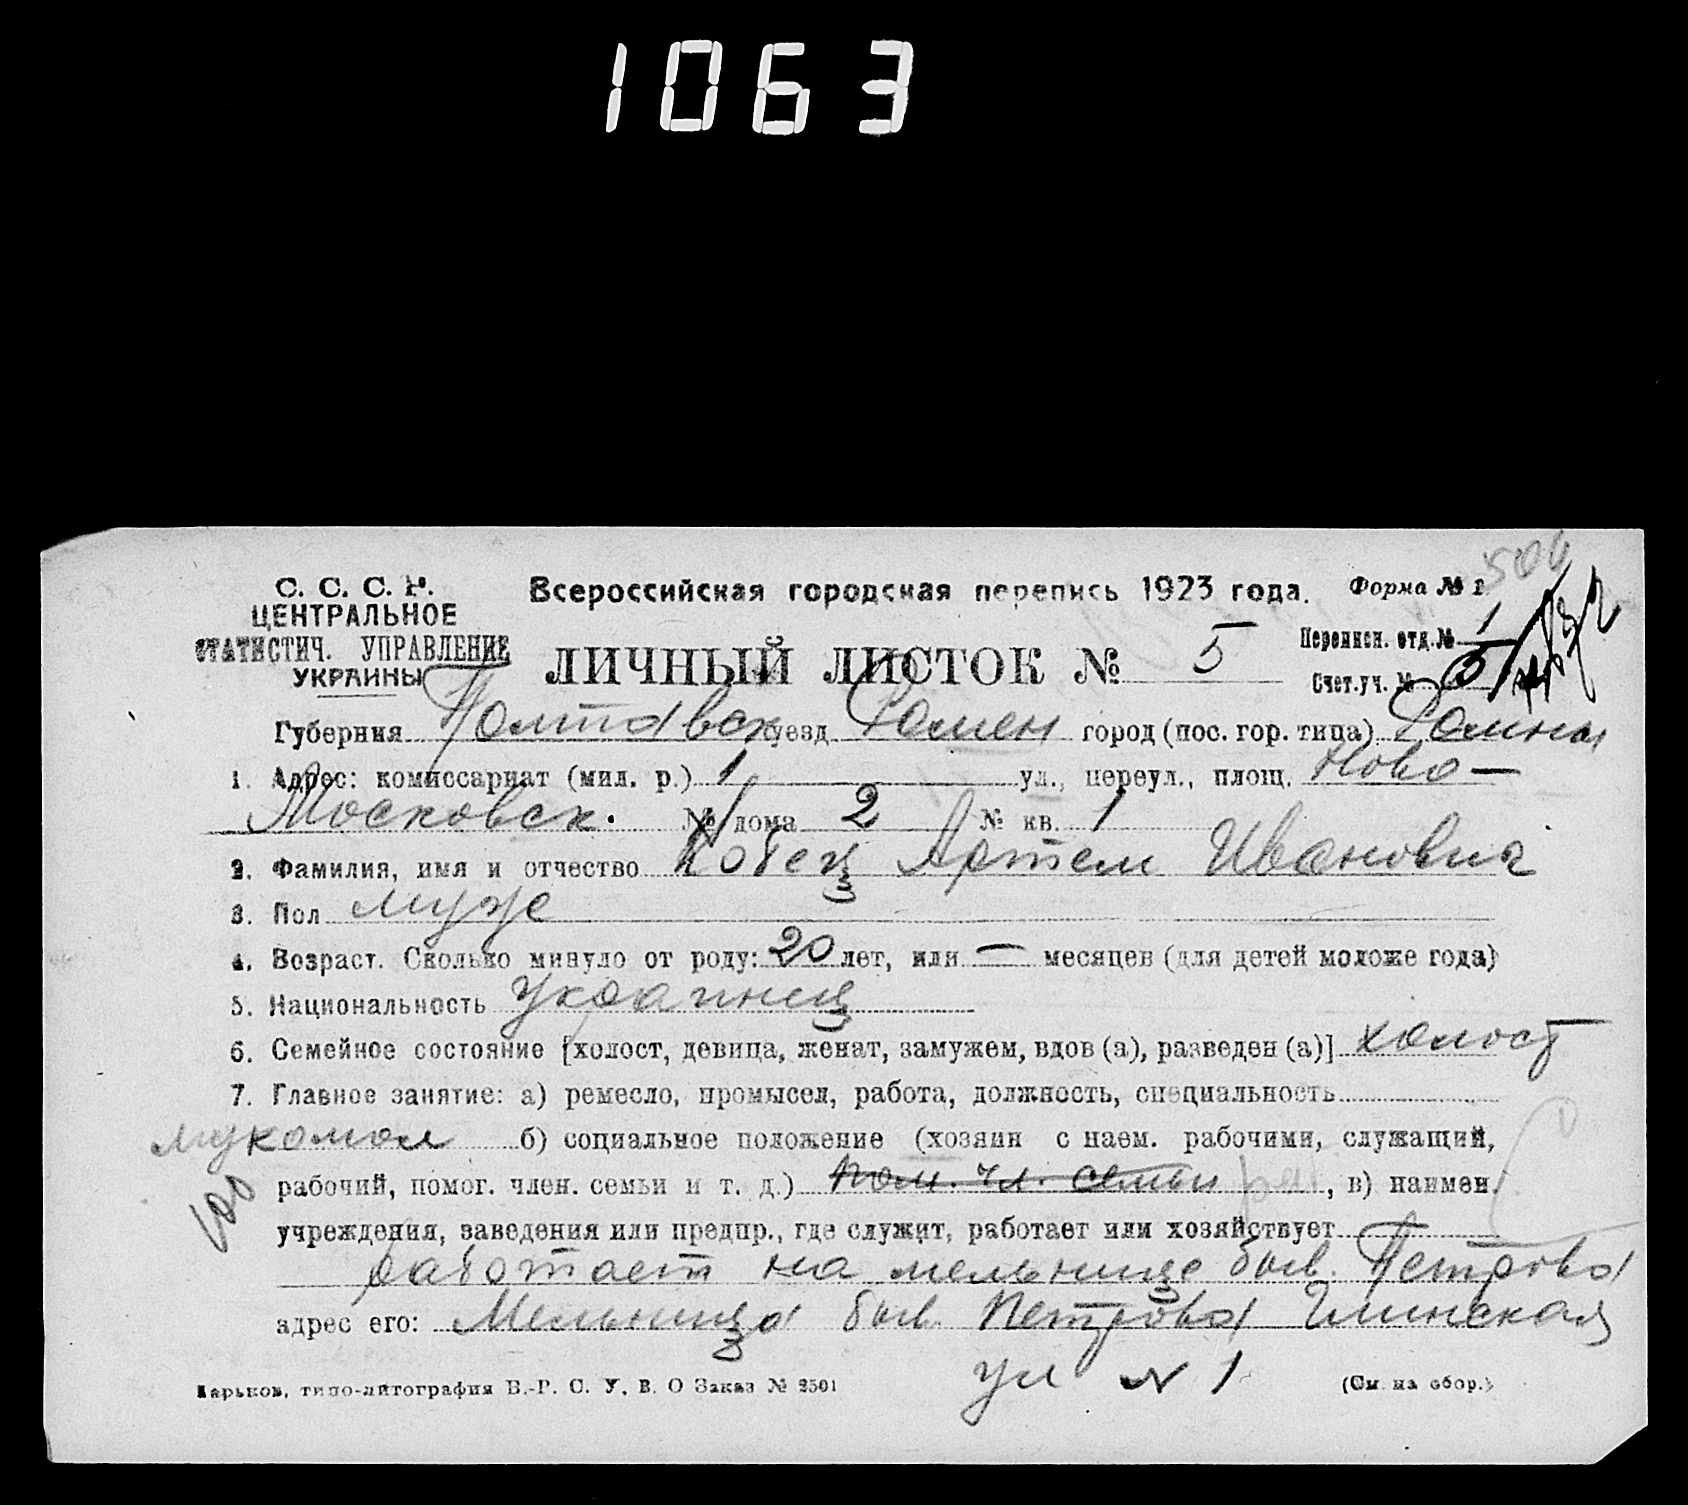 1063
С. С. С. Р.
ЦЕНТРАЛЬНОЕ
СТАТИСТИЧ. УПРАВЛЕНИЕ
УКРАИНЫ
Всероссийская городская перепись 1923 года.
Форма № 1
500
ЛИЧНЫЙ ЛИСТОК № 5
Переписн. отд. № 1
Счет. уч. № 5
Губерния Полтавск уезд Ромен город (пос. гор. типа) Ромны
1. Адрес: комиссариат (мил. р.) 1 ул., переул., площ. Ново-
Московск. № дома 2 № кв. 1
2. Фамилия, имя и отчество Кобец Артем Иванович
3. Пол муже
4. Возраст. Сколько минуло от роду: 20 лет, или — месяцев (для детей моложе года)
5. Национальность Украинец
6. Семейное состояние [холост, девица, женат, замужем, вдов (а), разведен (а)] холост
7. Главное занятие: а) ремесло, промысел, работа, должность, специальность
мукомол б) социальное положение (хозяин с наем. рабочими, служащий,
рабочий, помог. член. семьи и т. д.) пом. чл. семьи раб, в) наимен.
учреждения, заведения или предпр., где служит, работает или хозяйствует
работает на мельнице быв. Петрова
адрес его: Мельница быв. Петрова Глинская
ул N 1
Харьков, типо-литография В.-Р. С. У. В. О Заказ № 2501
(См. на обор.)